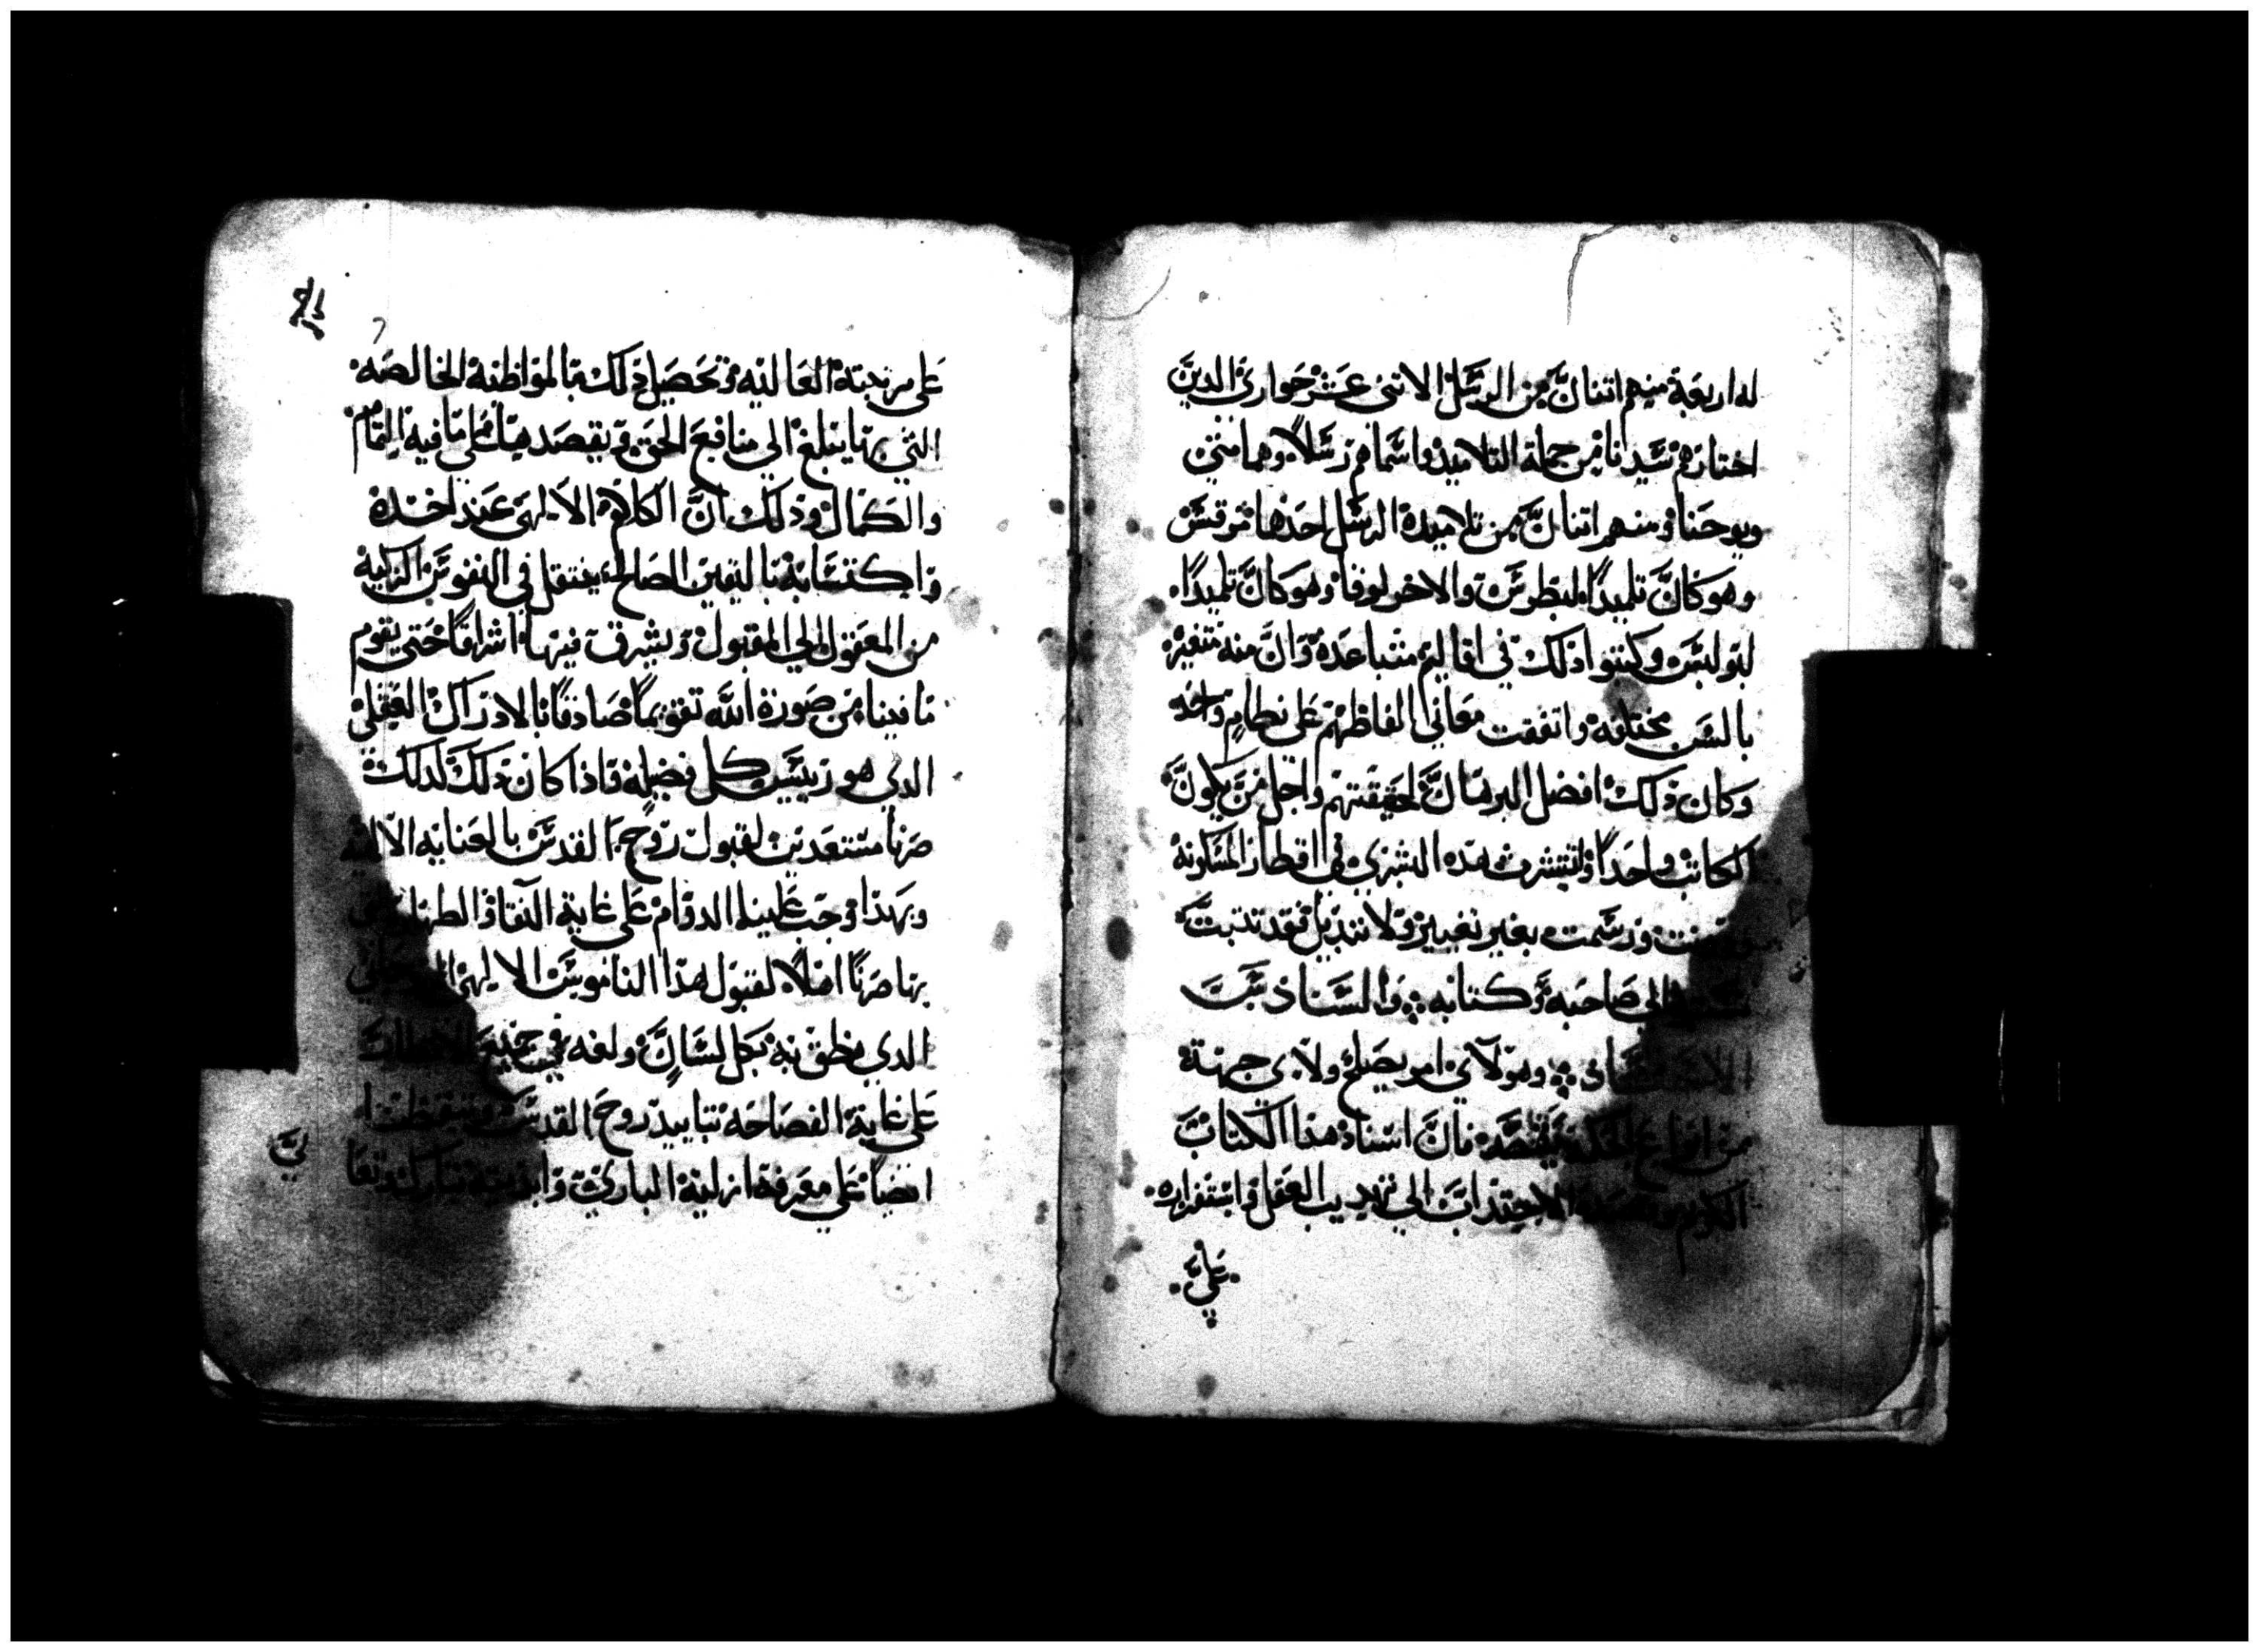 له اربعة منهم اتنان من الرسل الاتنى عشر حوارى الدين
اختارهم سيدنا من جملة التلاميذ واسماهم رسلاً وهما متى
ويوحنا ومنهم اتنان من تلاميدة الرسل احدها مرقس
وهو كان تلميدًا لبطرس والاخر لوقا وهو كان تلميدًا
لبولس وكتبوا دلك في اقاليم متباعدة وان منه متغيرة
بالسن مختلفه واتفقت معاني الفاظهم على نظام واحد
وكان دلك افضل البرهان لحقيقتهم واجل من يكون
الكاتب واحدًا وانتشرت هده البشرى في الاقطار المسكونة
ورسمت بغير تغيير ولا تبديل فقد تدبت
الى صاحبه وكتابه والسناد تبت
وهو لاي امر يصلح ولاي جهة
من انواع الحكمة يقصد فان اسناد هدا الكتاب
الكريم الاجتداب الى تهديب العقل واستفزازه
على
على مرتبته العاليه وتحصيل دلك بالمواظبة الخالصه
التي بها يتبلغ الي منافع الحق ويقصد هيا كملي ما فيه التمام
والكمال ودلك ان الكلام الالهى عند اخده
واكتسابه باليقين الصالح ينتقل في النفوس الزكية
من المعقول الي المقبول ويشرق فيها اشراقًا حتى يقوم
ما فينا من صورة الله تقويمًا صادقًا بالادراك العقلى
الدي هو رييس كل فضيلة فادا كان دلك كدلك
صرنا مستعدين لقبول روح القدس بالعنايه الالهية
وبهدا وجب علينا الدوام على غاية النقاوة الطهارة
بها صرنا اهلاً لقبول هدا الناموس الالهى
الدي نطق به بكل لسان ولغه في جميع الاقطار
على غاية الفصاحه بتاييد روح القدس
ايضاً على معرفة ازلية البارى وابديته
لي